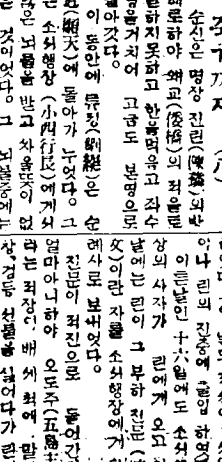 순신은 명장 진린(陳璘)의 반
대로하야 왜교(倭橋)의 적을
멸하지못하고 한을먹음고 좌수
영을거치어 고금도 본영으로
돌아갓다.
이 동안에 류정(劉綎)은 순
천(順天)에 돌아가 누엇다. 그
는 소서행장(小西行長)에게서
많은 뇌물을 받고 싸울뜻이 없
는 것이엇다. 그 뇌물중에는
이나 린의 진중에 출입하엿
이튼날인 十六일에도 소서
상의 사자가 린에게 오고
날에는 린이 그 부하 진문(陳
文)이란 자를 소서행장에게
례사로 보내엇다.
진문이 적진으로 들어간
얼마아니하야 오도주(五島主
라는 적장이 배 세척에 말
창,검등 선물을 실어다가 린